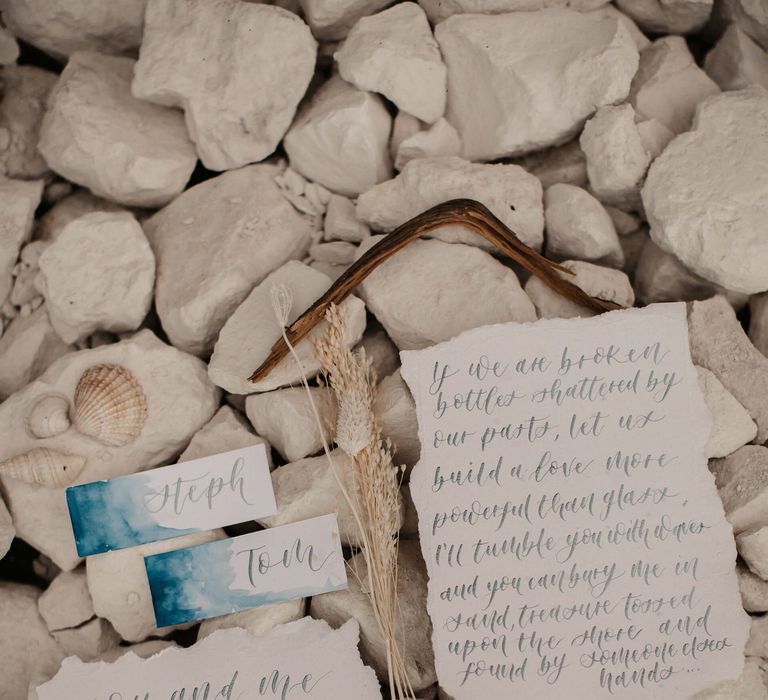 If we are broken
bottles shattered by
our pasts, let us
build a love more
powerful than glass,
I'll tumble you with waves
and you can bury me in
sand, treasure tossed
upon the shore and
found by someone elses
hands...
steph
Tom
you and me